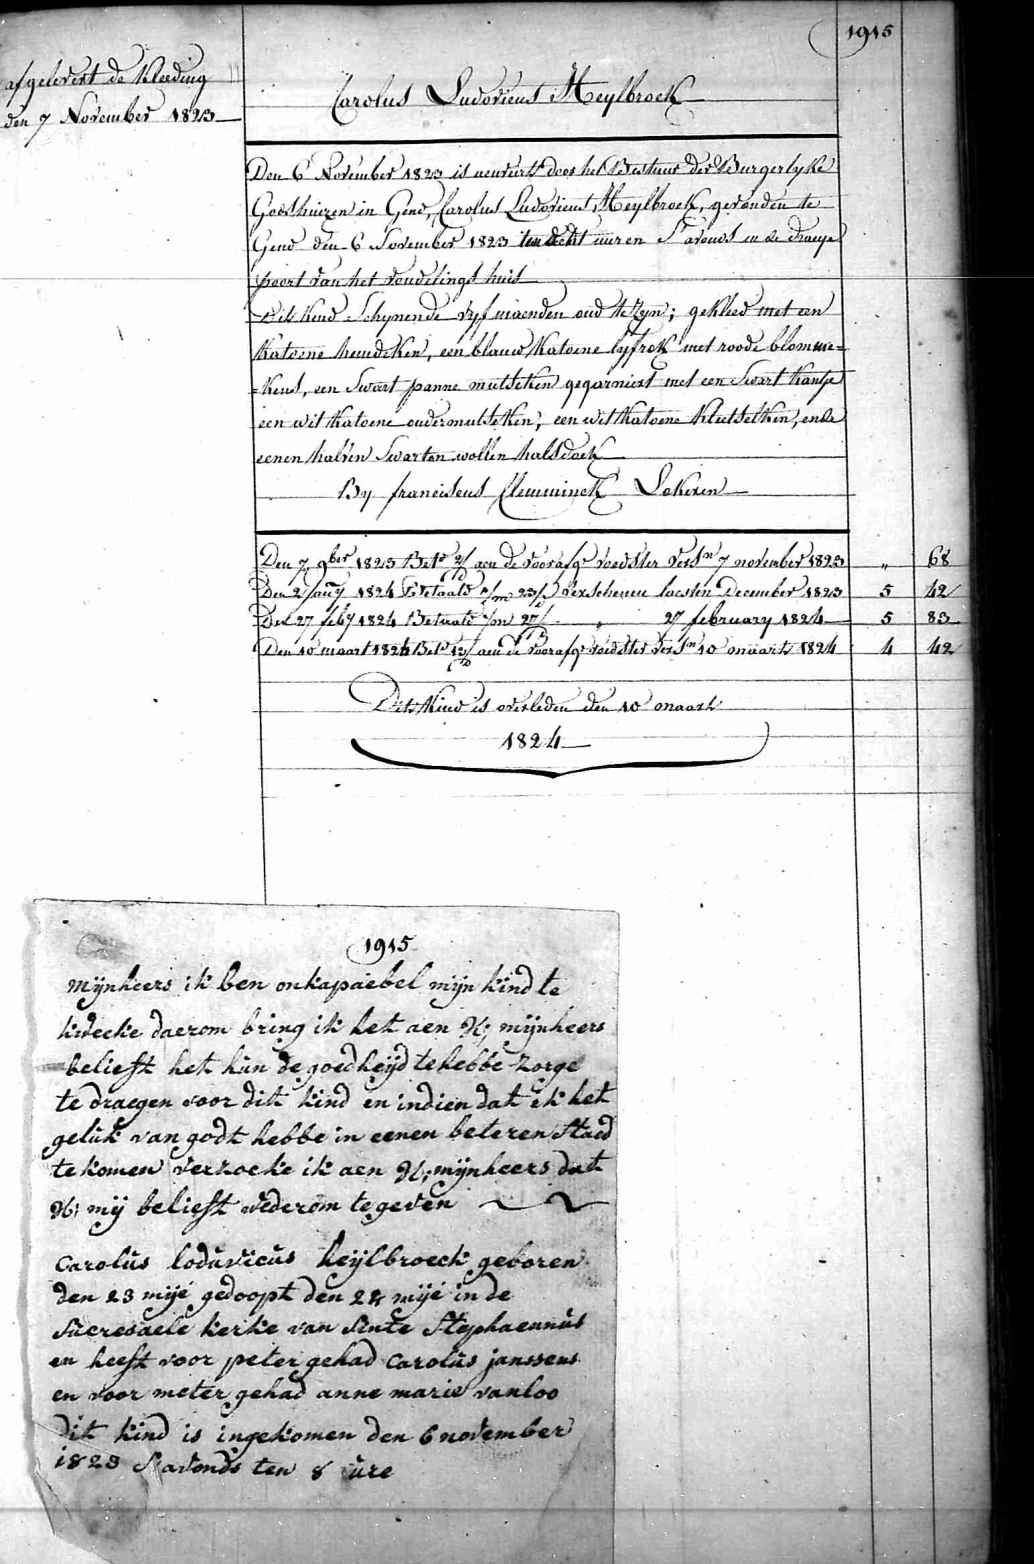 1915
afgelevert de Kleeding
den 7 November 1823
Carolus Ludovicus Heylbroeck
Den 6 November 1823 is aenveirt door het Bestuur der Burgerlyke
Godshuizen in Gend, Carolus Ludovicus Heylbroeck, gevonden te
Gend den 6 November 1823 ten acht uuren S'avonds in de draeye
poort van het vondelings huis
Dit kind Schynende vyf maenden oud te zyn; gekleed met een
katoene hemdeken, een blauw katoene lyfrok met roode blomme=
=kens, een Swart panne mutseken gegarniert met een Swart kantje
een wit katoene ondermutseken; een wit katoene klutselken, ende
eenen halven Swarten wollen halsdoek
By franciscus Clemminck Lokeren
Den 7 9ber 1823 Bet. aen de voorafge voedster versn 7 november 1823 „ 68
Den 2 Jany 1824 Betaald 2/m 23/ verschenen lacsten December 1823 5 42
Den 27 feby 1824 Betaald 2/m 27/ „ 27 february 1824 5 83
Den 10 maart 1824 Bet. aen de voorafge voedster versn 10 maart 1824 4 42
Dit kind is overleden den 10 maart
1824
1915
Mijnheers ik ben onkapaebel mijn kind te
kwecke daerom bring ik het aen U; mijnheers
belieft het hun de goedheijd te hebbe zorge
te draegen voor dit kind en indien dat ik het
geluk van godt hebbe in eenen beteren staed
te komen verzoeke ik aen U; mijnheers dat
U; mij belieft wederom te geven
Carolus loduvicus heijlbroeck geboren
den 23 mije gedoopt den 24 mije in de
sucresaele kerke van sinte Stephaennus
en heeft voor peter gehad Carolus janssens
en voor meter gehad anne marie vanloo
dit kind is ingekomen den 6 november
1823 S avonds ten 8 ure